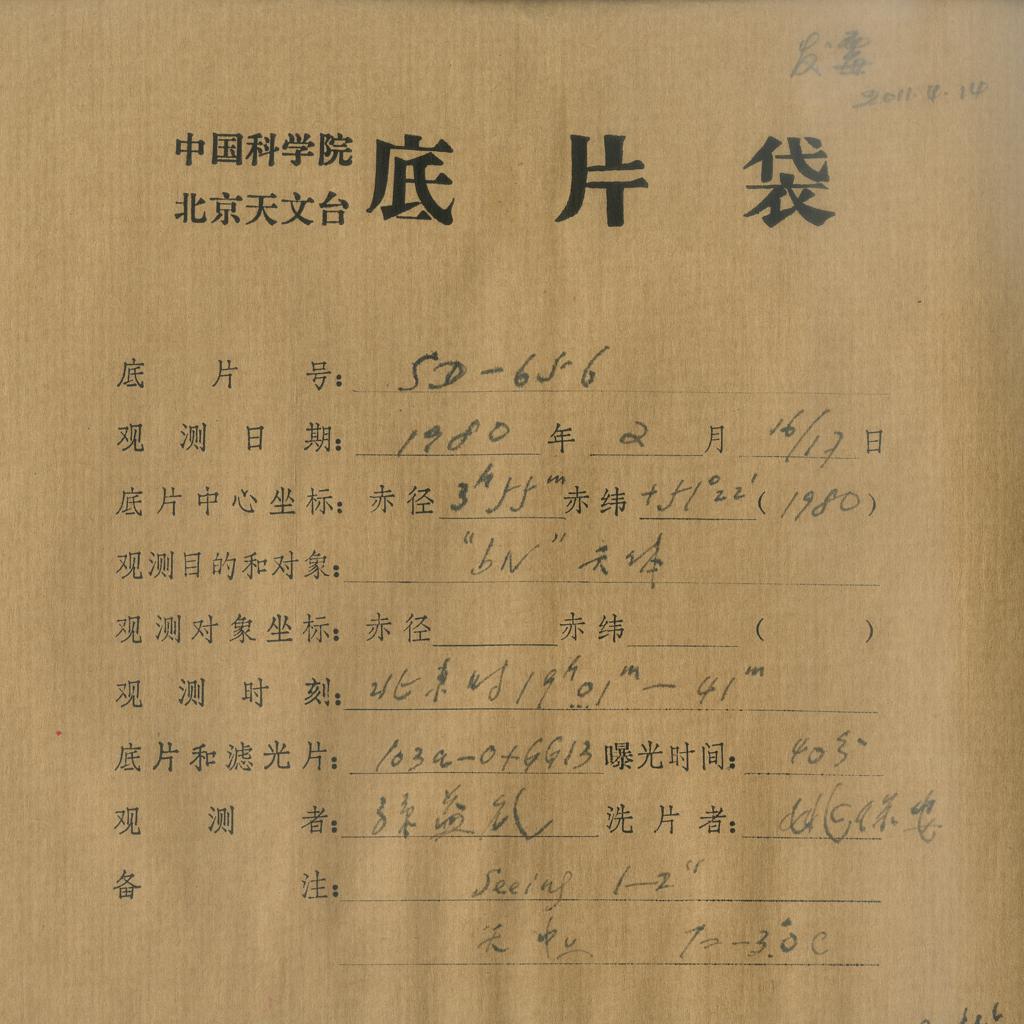 发霉
2011.4.14
中国科学院
北京天文台
底片袋
底片号: SD-656
观测日期: 1980 年 2 月 16/17 日
底片中心坐标: 赤径 3ʰ55ᵐ 赤纬 +51°22′ (1980)
观测目的和对象: "bN" 天体
观测对象坐标: 赤径 赤纬 ( )
观测时刻: 北京时 19ʰ01ᵐ—41ᵐ
底片和滤光片: 103a-O+GG13 曝光时间: 40分
观测者: 益 洗片者: 姚保安
备注: Seeing 1-2″
天中 T=-3.0°C